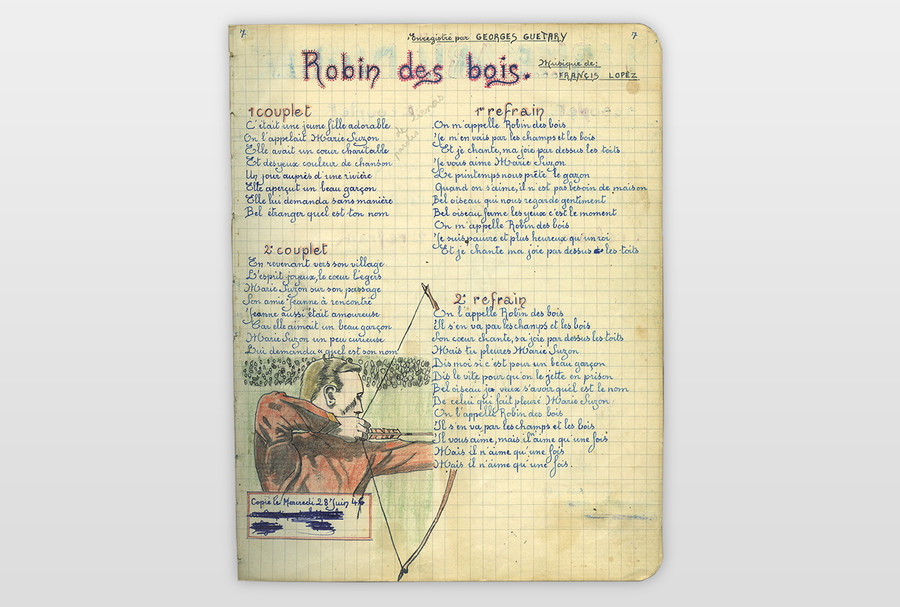 7
Enregistré par GEORGES GUETARY
7
Robin des bois.
Musique de:
FRANCIS LOPEZ
1 couplet
C'était une jeune fille adorable
On l'appelait Marie Suzon
Elle avait un cœur charitable
Et des yeux couleur de chanson
Un jour auprès d'une rivière
Elle aperçut un beau garçon
Elle lui demanda sans manière
Bel étranger quel est ton nom
1er refrain
On m'appelle Robin des bois
Je m'en vais par les champs et les bois
Et je chante, ma joie par dessus les toits
Je vous aime Marie Suzon
Le printemps nous prête le gazon
Quand on s'aime, il n'est pas besoin de maison
Bel oiseau qui nous regarde gentiment
Bel oiseau ferme les yeux c'est le moment
On m'appelle Robin des bois
Je suis pauvre et plus heureux qu'un roi
Et je chante ma joie par dessus les toits
2e couplet
En revenant vers son village
L'esprit joyeux, le cœur légers
Marie Suzon sur son passage
Son amie Jeanne à rencontré
Jeanne aussi était amoureuse
Car elle aimait un beau garçon
Marie Suzon un peu curieuse
Lui demanda "quel est son nom
2e refrain
On l'appelle Robin des bois
Il s'en va par les champs et les bois
Son cœur chante, sa joie par dessus les toits
Mais tu pleures Marie Suzon
Dis moi si c'est pour un beau garçon
Dis le vite pour qu'on le jette en prison
Bel oiseau je veux s'avoir quel est le nom
De celui qui fait pleuré Marie Suzon
On l'appelle Robin des bois
Il s'en va par les champs et les bois
Il vous aime, mais il aime qu'une fois
Mais il n'aime qu'une fois
Mais il n'aime qu'une fois.
Copié le Mercredi 28 Juin 46